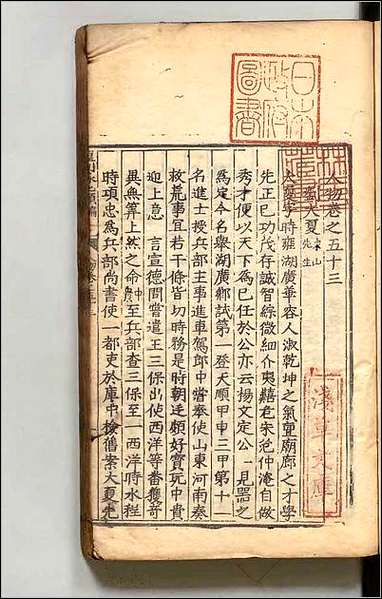 日本政府圖書
人物卷之五十三
劉大夏 東山先生
大夏字時雍湖廣華容人淑乾坤之氣望廟廊之才學
先正已功茂存誠智綜微細介夷老朱范仲淹自做
秀才便以天下為已任於公亦云楊文定公一見器之
為定今名舉湖廣鄉試第一登天順甲申三甲第十一
名進士授兵部主事進車駕郎中嘗奉使山東河南奏
救荒事宜若干條皆切時務是時朝廷頗好寶玩中貴
迎上意言宣德間嘗遣王三保出使西洋等番獲奇
異無筭上然之命中至兵部查三保至一西洋時水程
時項忠為兵部尚書使一都吏於庫中檢舊案大夏先
淺草文庫